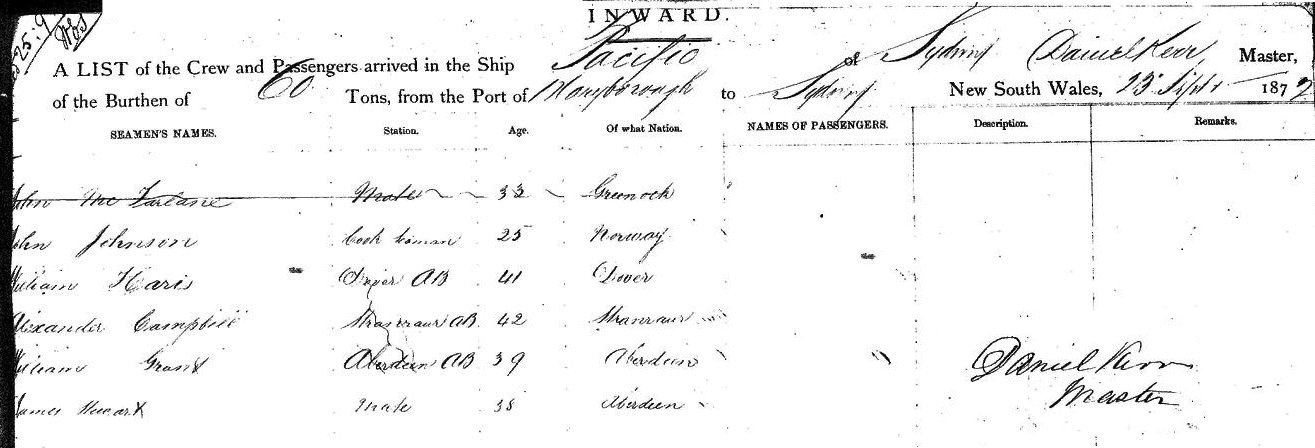 INWARD.
A LIST of the Crew and Passengers arrived in the Ship Pacific of Sydney Daniel Kerr, Master,
of the Burthen of 60 Tons, from the Port of Maryborough to Sydney New South Wales, 23 Sept 187
SEAMEN'S NAMES. Station. Age. Of what Nation. NAMES OF PASSENGERS. Description. Remarks.
John McFarlane Mate 33 Greenock
John Johnson Cook Seaman 25 Norway
William Haris Dover AB 41 Dover
Alexander Campbell Stranraur AB 42 Stranraur
William Grant Aberdeen AB 39 Aberdeen
James Mate 38 Aberdeen
Daniel Kerr
Master